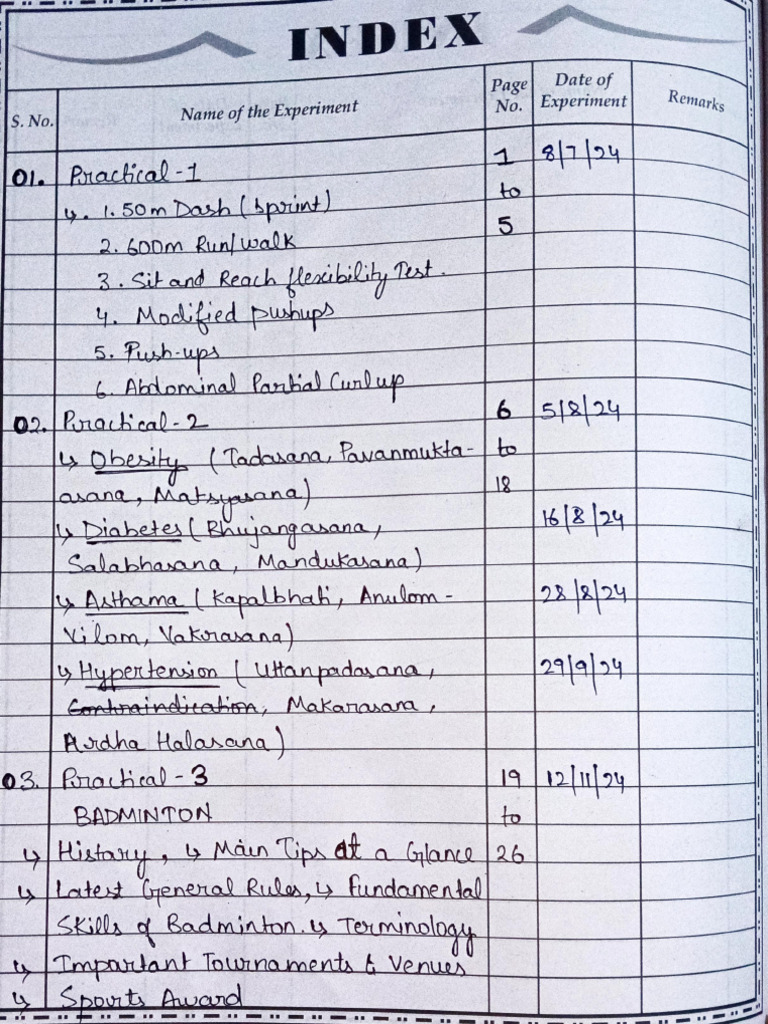 INDEX
S. No. Name of the Experiment Page No. Date of Experiment Remarks
01. Practical-1 1 8/7/24
↳. 1. 50m Dash (sprint) to
2. 600m Run/walk 5
3. Sit and Reach flexibility Test.
4. Modified pushups
5. Push-ups
6. Abdominal Partial Curl up
02. Practical-2 6 5/8/24
↳ Obesity (Tadasana, Pavanmukta- to
asana, Matsyasana) 18
↳ Diabetes (Bhujangasana, 16/8/24
Salabhasana, Mandukasana)
↳ Asthama (Kapalbhati, Anulom- 28/8/24
Vilom, Vakrasana)
↳ Hypertension (Uttanpadasana, 29/9/24
Contraindication, Makarasana,
Ardha Halasana)
03. Practical-3 19 12/11/24
BADMINTON to
↳ History, ↳ Main Tips at a Glance 26
↳ Latest General Rules, ↳ Fundamental
Skills of Badminton. ↳ Terminology
↳ Important Tournaments & Venues
↳ Sports Award